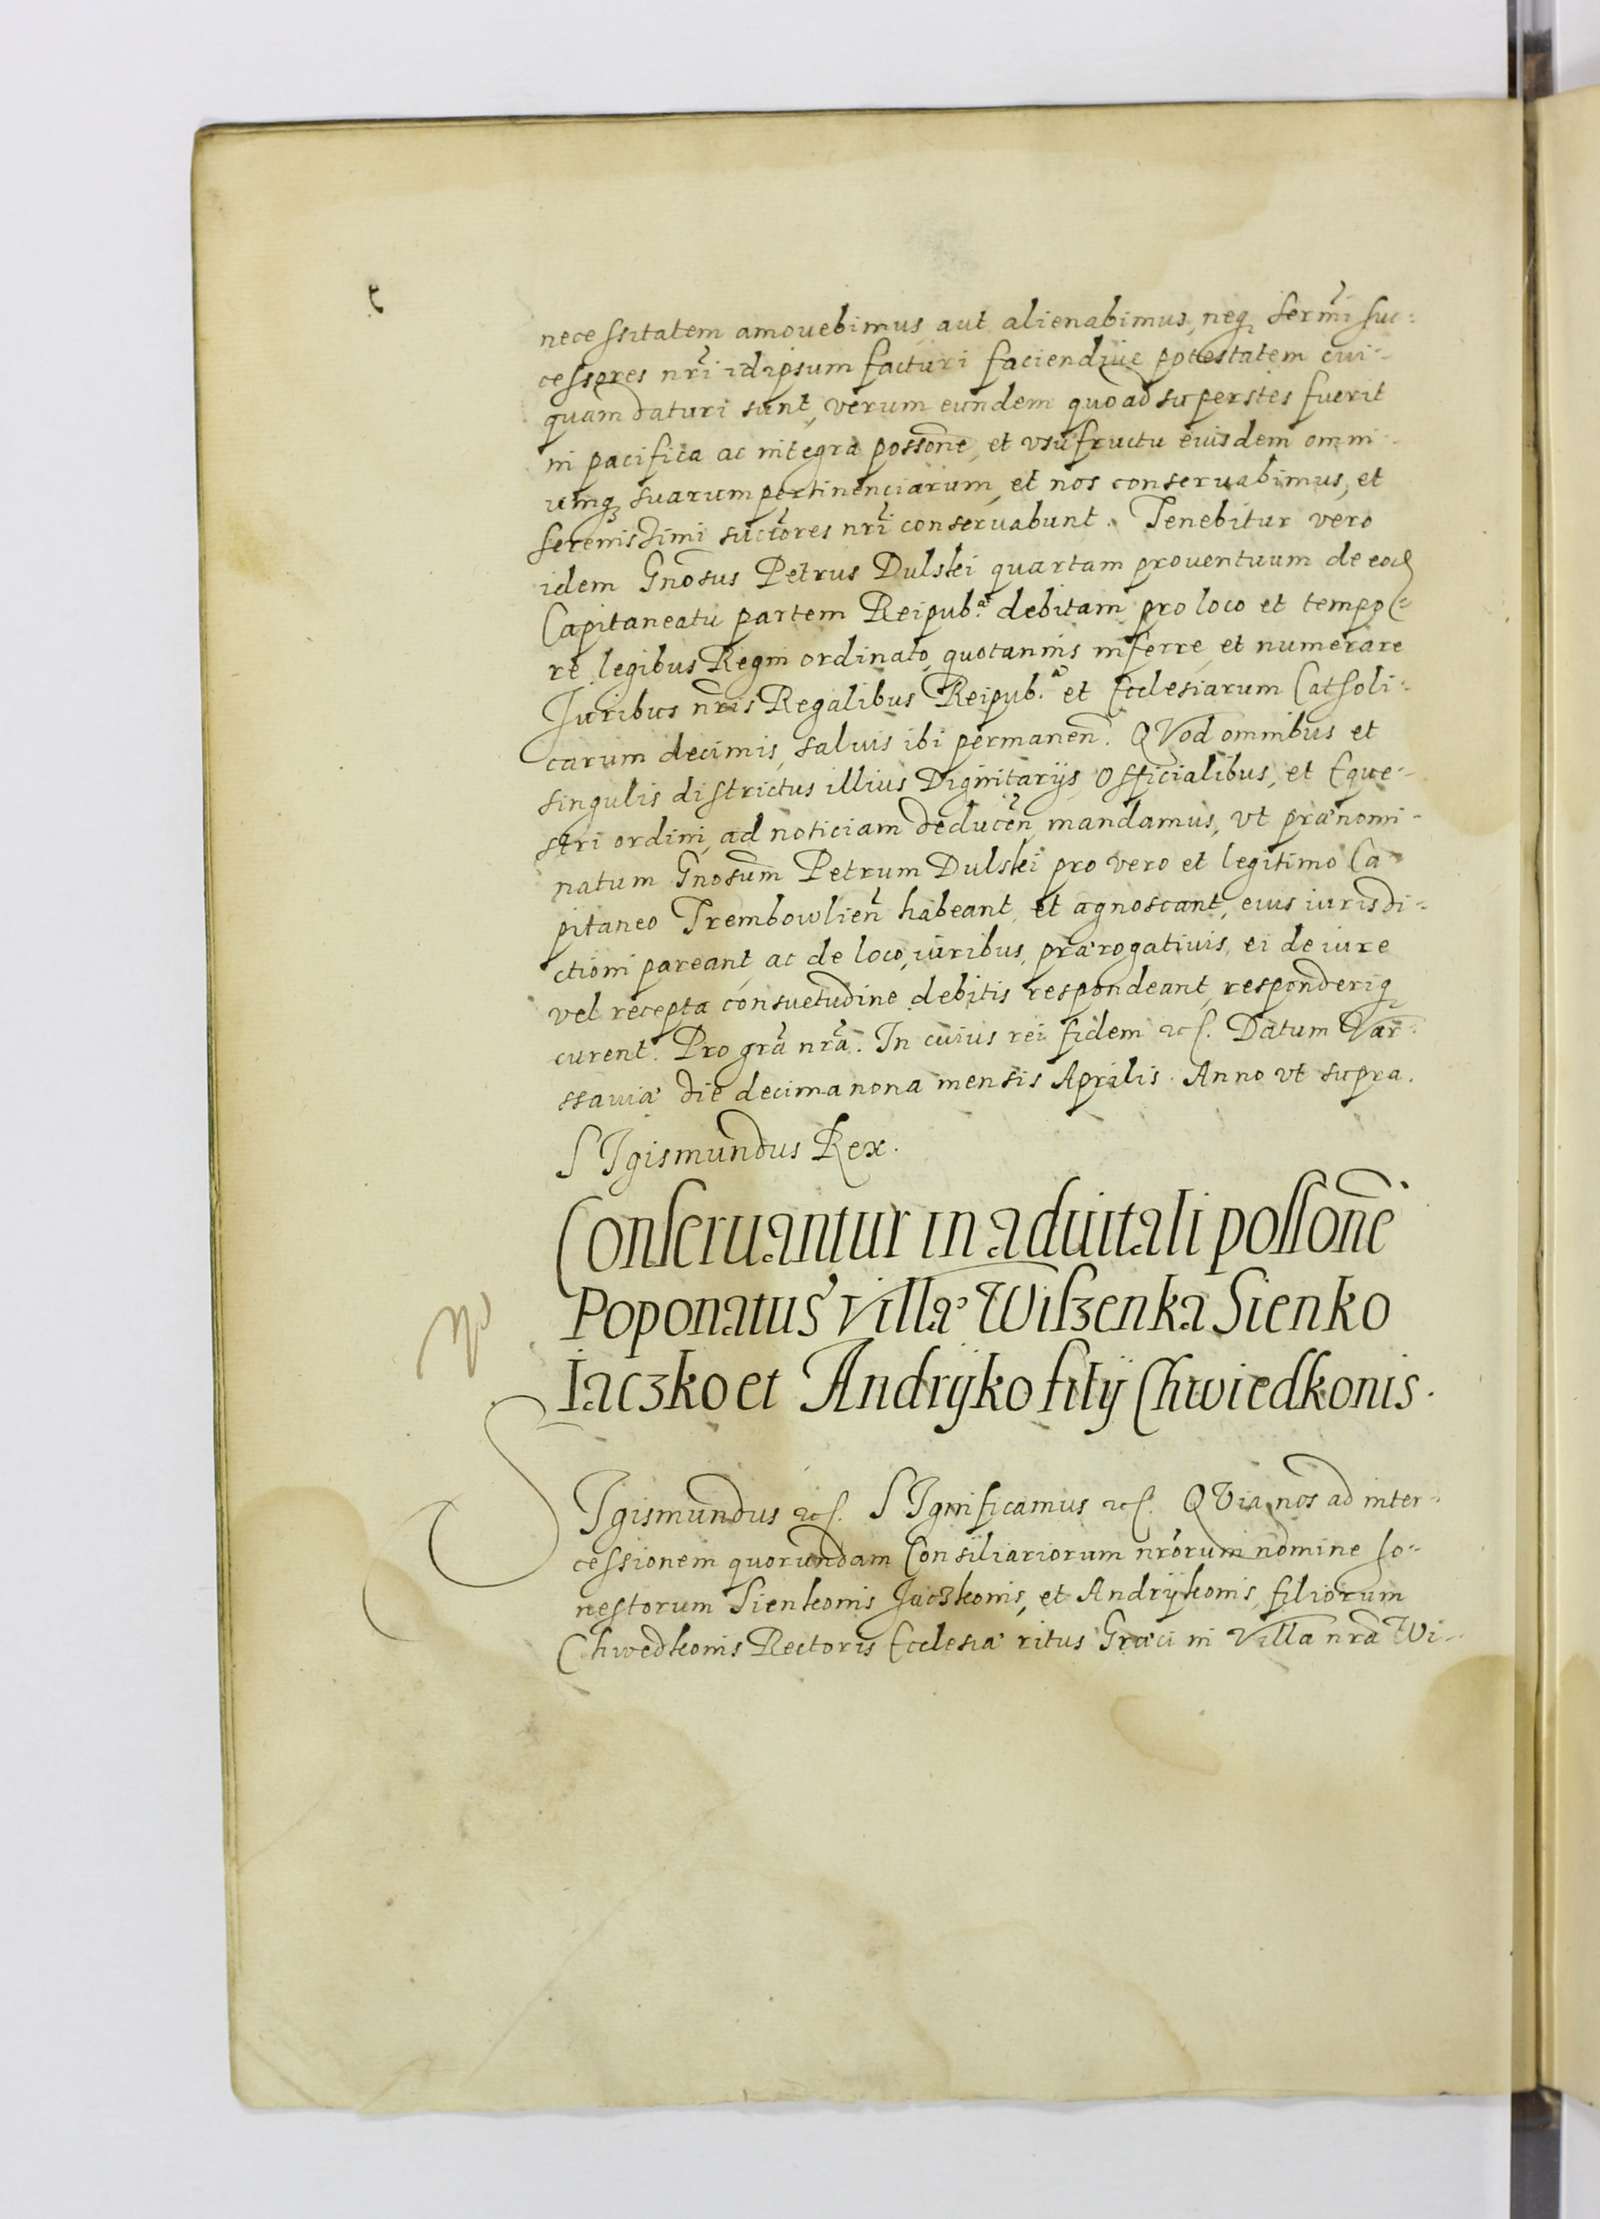 necessitatem amovebimus, aut alienabimus, neq₃ sermi suc:
cessores nri idipsum facturi faciendiue potestatem cui-
quam daturi sunt, verum eundem quoad superstes fuerit
in pacifica ac integra possone, et vsufructu eiusdem omni-
umq₃ suarum pertinenciarum, et nos conseruabimus, et
serenissimi succores nri conseruabunt. Tenebitur vero
idem Gnosus Petrus Dulski quartam prouentuum de eod
Capitaneatu partem Reipub. debitam pro loco et tempo-
re legibus Regni ordinato, quotannis inferre, et numerare
Juribus nris Regalibus Reipub. et Ecclesiarum Catholi-
carum decimis, saluis ibi permanen. QVod omnibus et
singulis districtus illius Dignitarijs, Officialibus, et Eque-
stri ordini, ad noticiam deducen, mandamus, vt prænomi-
natum Gnosum Petrum Dulski pro vero et legitimo Ca
pitaneo Trembowlien habeant, et agnoscant, eius iurisdi-
ctioni pareant, ac de loco, iuribus, prærogatiuis, ei de iure
vel recepta consuetudine debitis respondeant, responderiq₃
curent. Pro gra nra. In cuius rei fidem etc. Datum Var-
ssauiæ die decima nona mensis Aprilis. Anno vt supra.
SIgismundus Rex.
Conseruantur in aduitali possone
Poponatus villæ Wiszenka Sienko
Iaczko et Andrijko filij Chwiedkonis.
SIgismundus etc. SIgnificamus etc. QVia nos ad inter-
cessionem quorundam Consiliariorum nrorum nomine ho-
nestorum Sienkonis Jaczkonis, et Andrijkonis, filiorum
Chwedkonis Rectoris Ecclesiæ ritus Græci in Villa nra Wi-